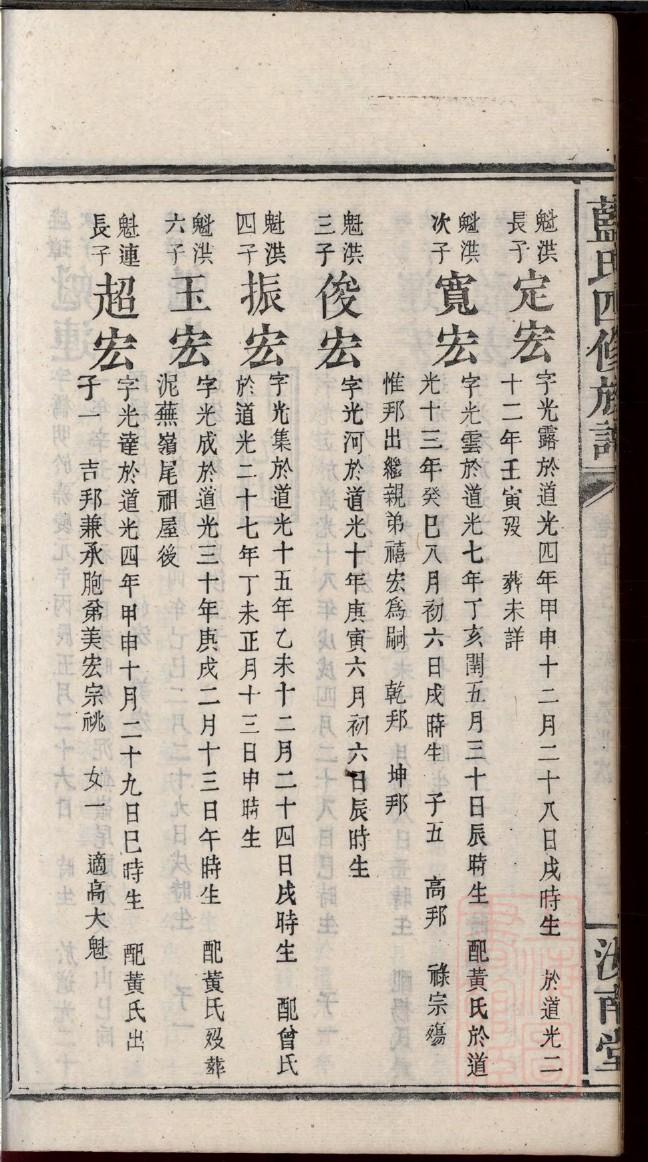 藍氏四修族譜
汝南堂
魁洪長子
定宏
字光露於道光四年甲申十二月二十八日戌時生 於道光二
十二年壬寅歿 葬未詳
魁洪次子
寬宏
字光雲於道光七年丁亥閏五月三十日辰時生 配黃氏於道
光十三年癸巳八月初六日戌時生 子五 高邦 祿宗殤
惟邦出繼親弟禧宏為嗣 乾邦 坤邦
魁洪三子
俊宏
字光河於道光十年庚寅六月初六日辰時生
魁洪四子
振宏
字光集於道光十五年乙未十二月二十四日戌時生 配曾氏
於道光二十七年丁未正月十三日申時生
魁洪六子
玉宏
字光成於道光三十年庚戌二月十三日午時生 配黃氏歿葬
泥蕪嶺尾祖屋後
魁連長子
超宏
字光達於道光四年甲申十月二十九日巳時生 配黃氏出
子一 吉邦兼承胞弟美宏宗祧 女一 適高大魁